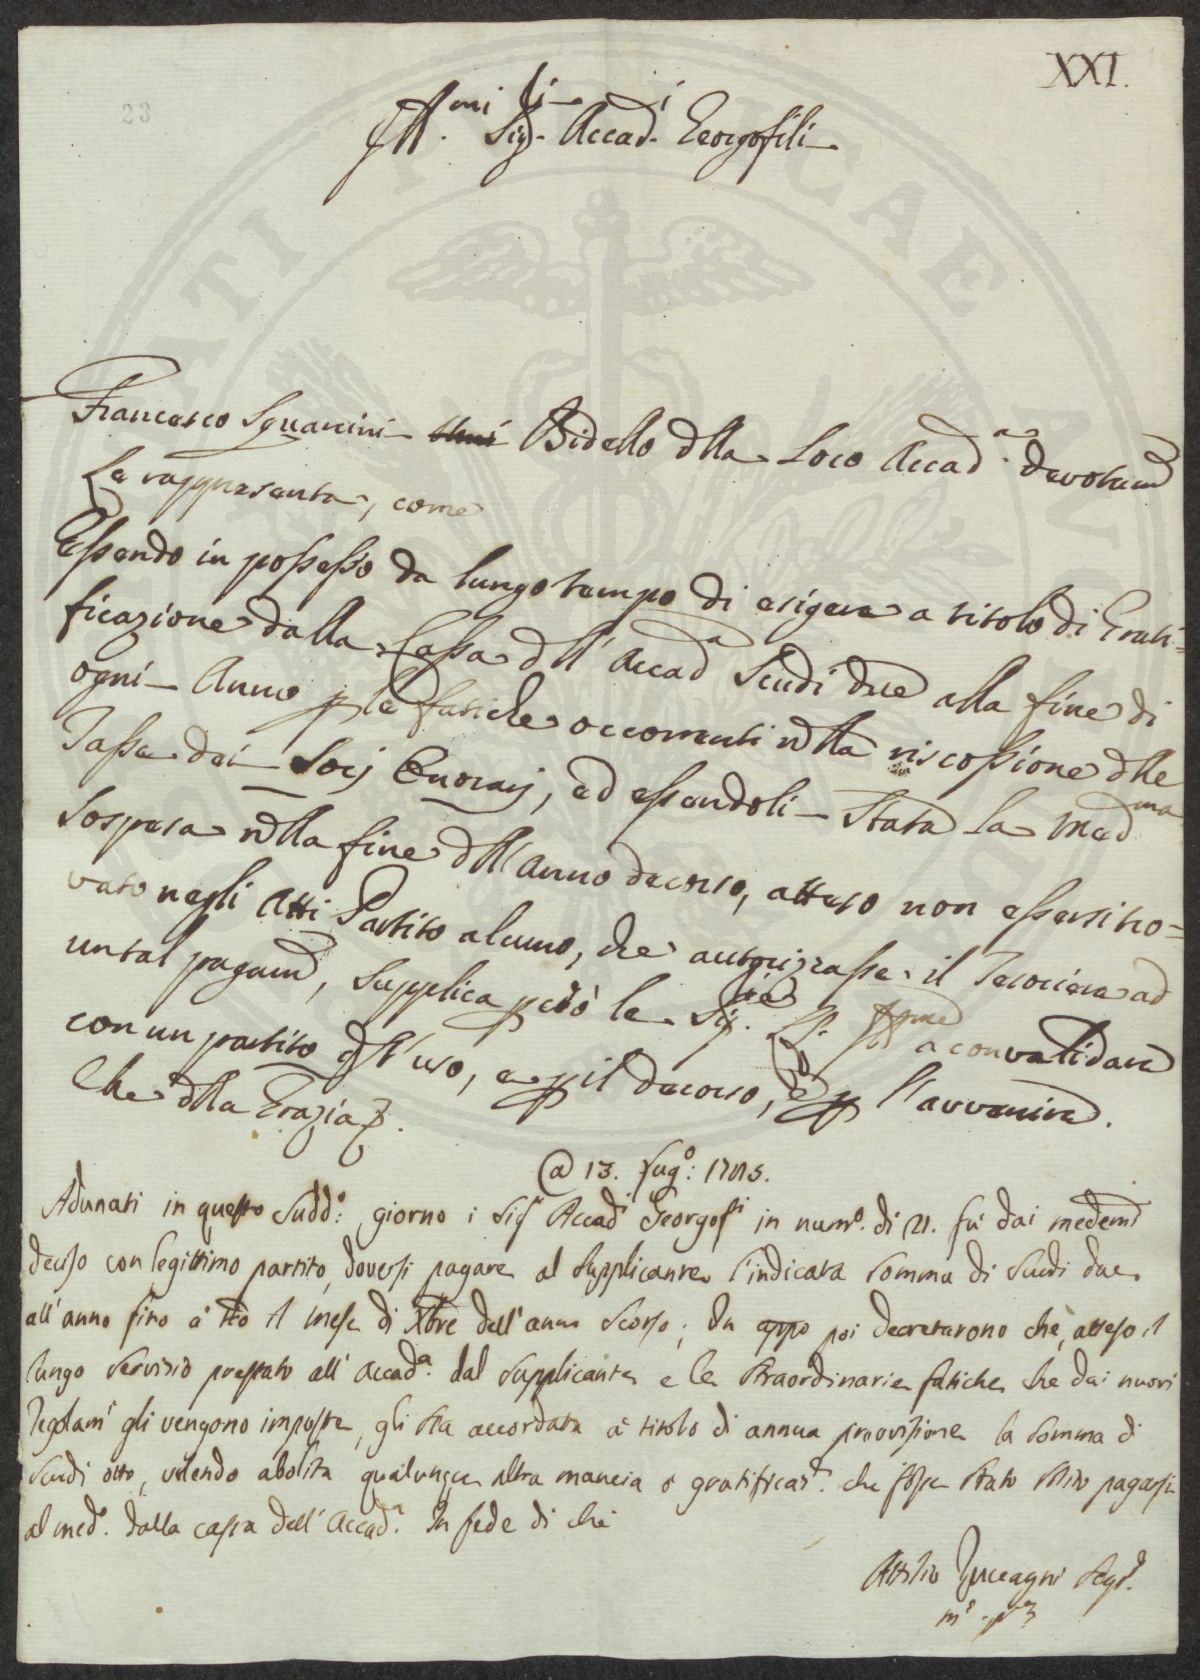 XXI.
23
Ill.mi Sig.ri Accad.i Georgofili
Francesco Sguanini Bidello dlla Loro Accad.a devotam
Le rappresenta, come
Essendo in possesso da lungo tempo di esigere a titolo di Grati=
ficazione dalla Cassa dll' Accad.a Scudi due alla fine di
ogni Anno p le fatiche occorrenti nlla riscossione dlle
Tasse dei Socj Onorarj, ed essendoli Stata la Med.ma
Sospesa nlla fine dll' anno decorso, atteso non essersi tro=
vato negli Atti Partito alcuno, che autorizzasse il Tesoriere ad
un tal pagam, Supplica però le Sig.rie LL. Ill.me a convalidare
con un partito dll' uso, e p il decorso, e p l'avvenire.
Che dlla Grazia &.
@ 13. Lug.o: 1785.
Adunati in questo Sudd.o: giorno i Sig.ri Accad.i Georgof.li in num.o. di 21. fù dai medemi
deciso con legittimo partito, doversi pagare al Supplicante l'indicata Somma di Scudi due
all' anno fino à tto il mese di Xbre dell' anno Scorso; In appo poi decretarono chè, atteso il
lungo Servizio prestato all' Accad.a. dal Supplicante e le Straordinarie fatiche che dai nuovi
Regolam.i gli vengono imposte, gli Sia accordata à titolo di annua provvisione la Somma di
Scudi otto, volendo abolita qualunque altra mancia o gratificaz.e. che fosse Stato Solito pagarsi
al med.o. dalla cassa dell' Accad.a. In fede di che
Attilio Zuccagni Seg.rio
m.o p.a